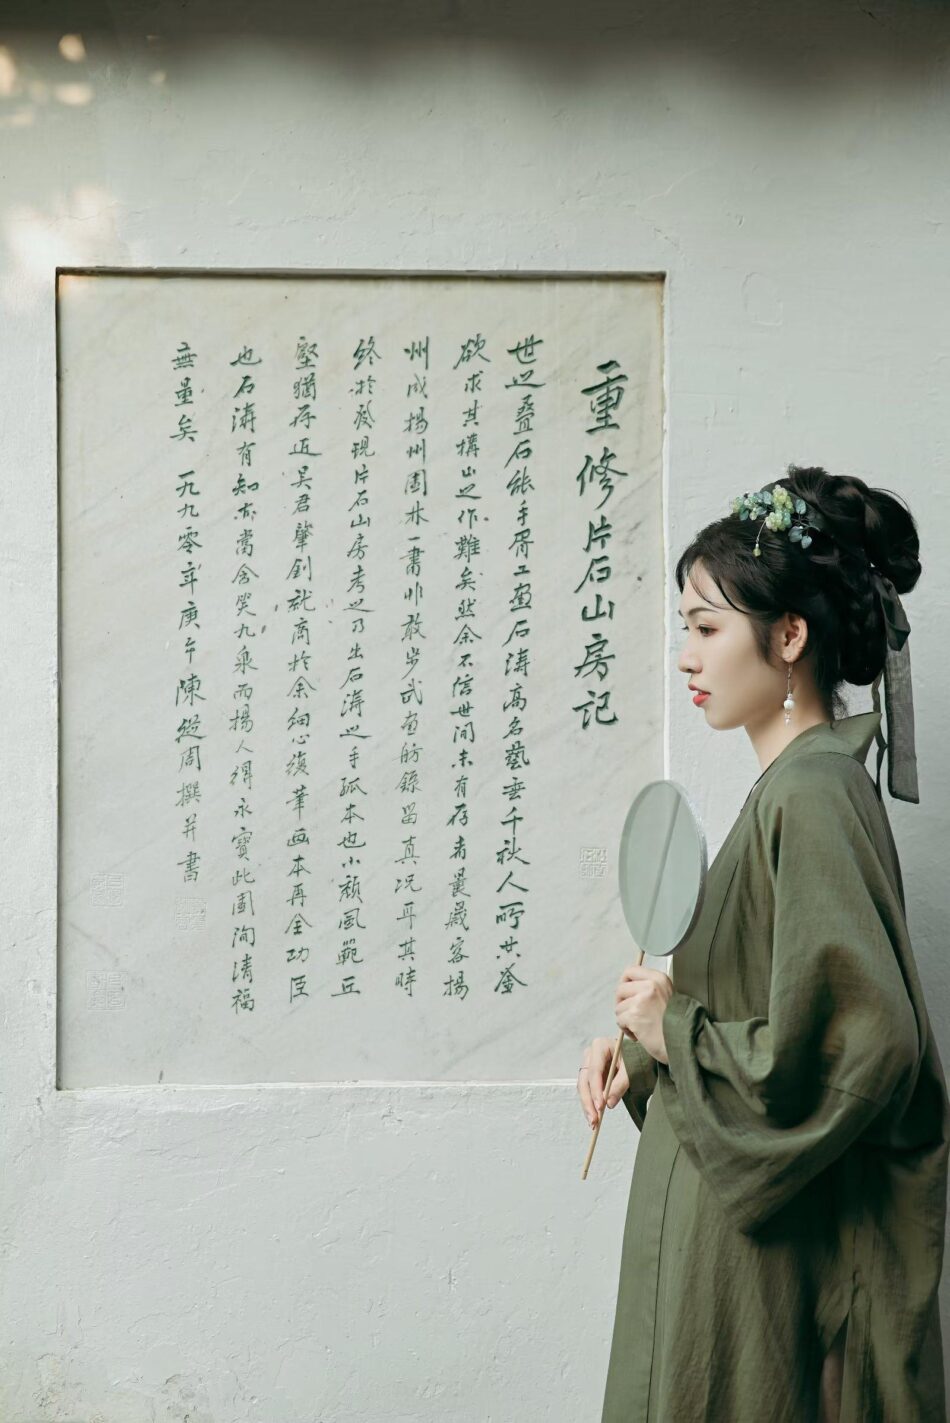 重修片石山房记
世之叠石能手胥工画石涛高名藝垂千秋人所共鉴
欲求其構山之作難矣然余不信世间未有存者曩歲客揚
州成揚州園林一書非敢步武画舫錄留真况耳其時
终於發現片石山房考之乃出石涛之手孤本也小頹風範丘
壑猶存近吴君肇钊就商於余细心復筆画本再全功臣
也石涛有知亦當含笑九泉而揚人得永寶此園洵清福
無量矣 一九九零年庚午陳從周撰并書